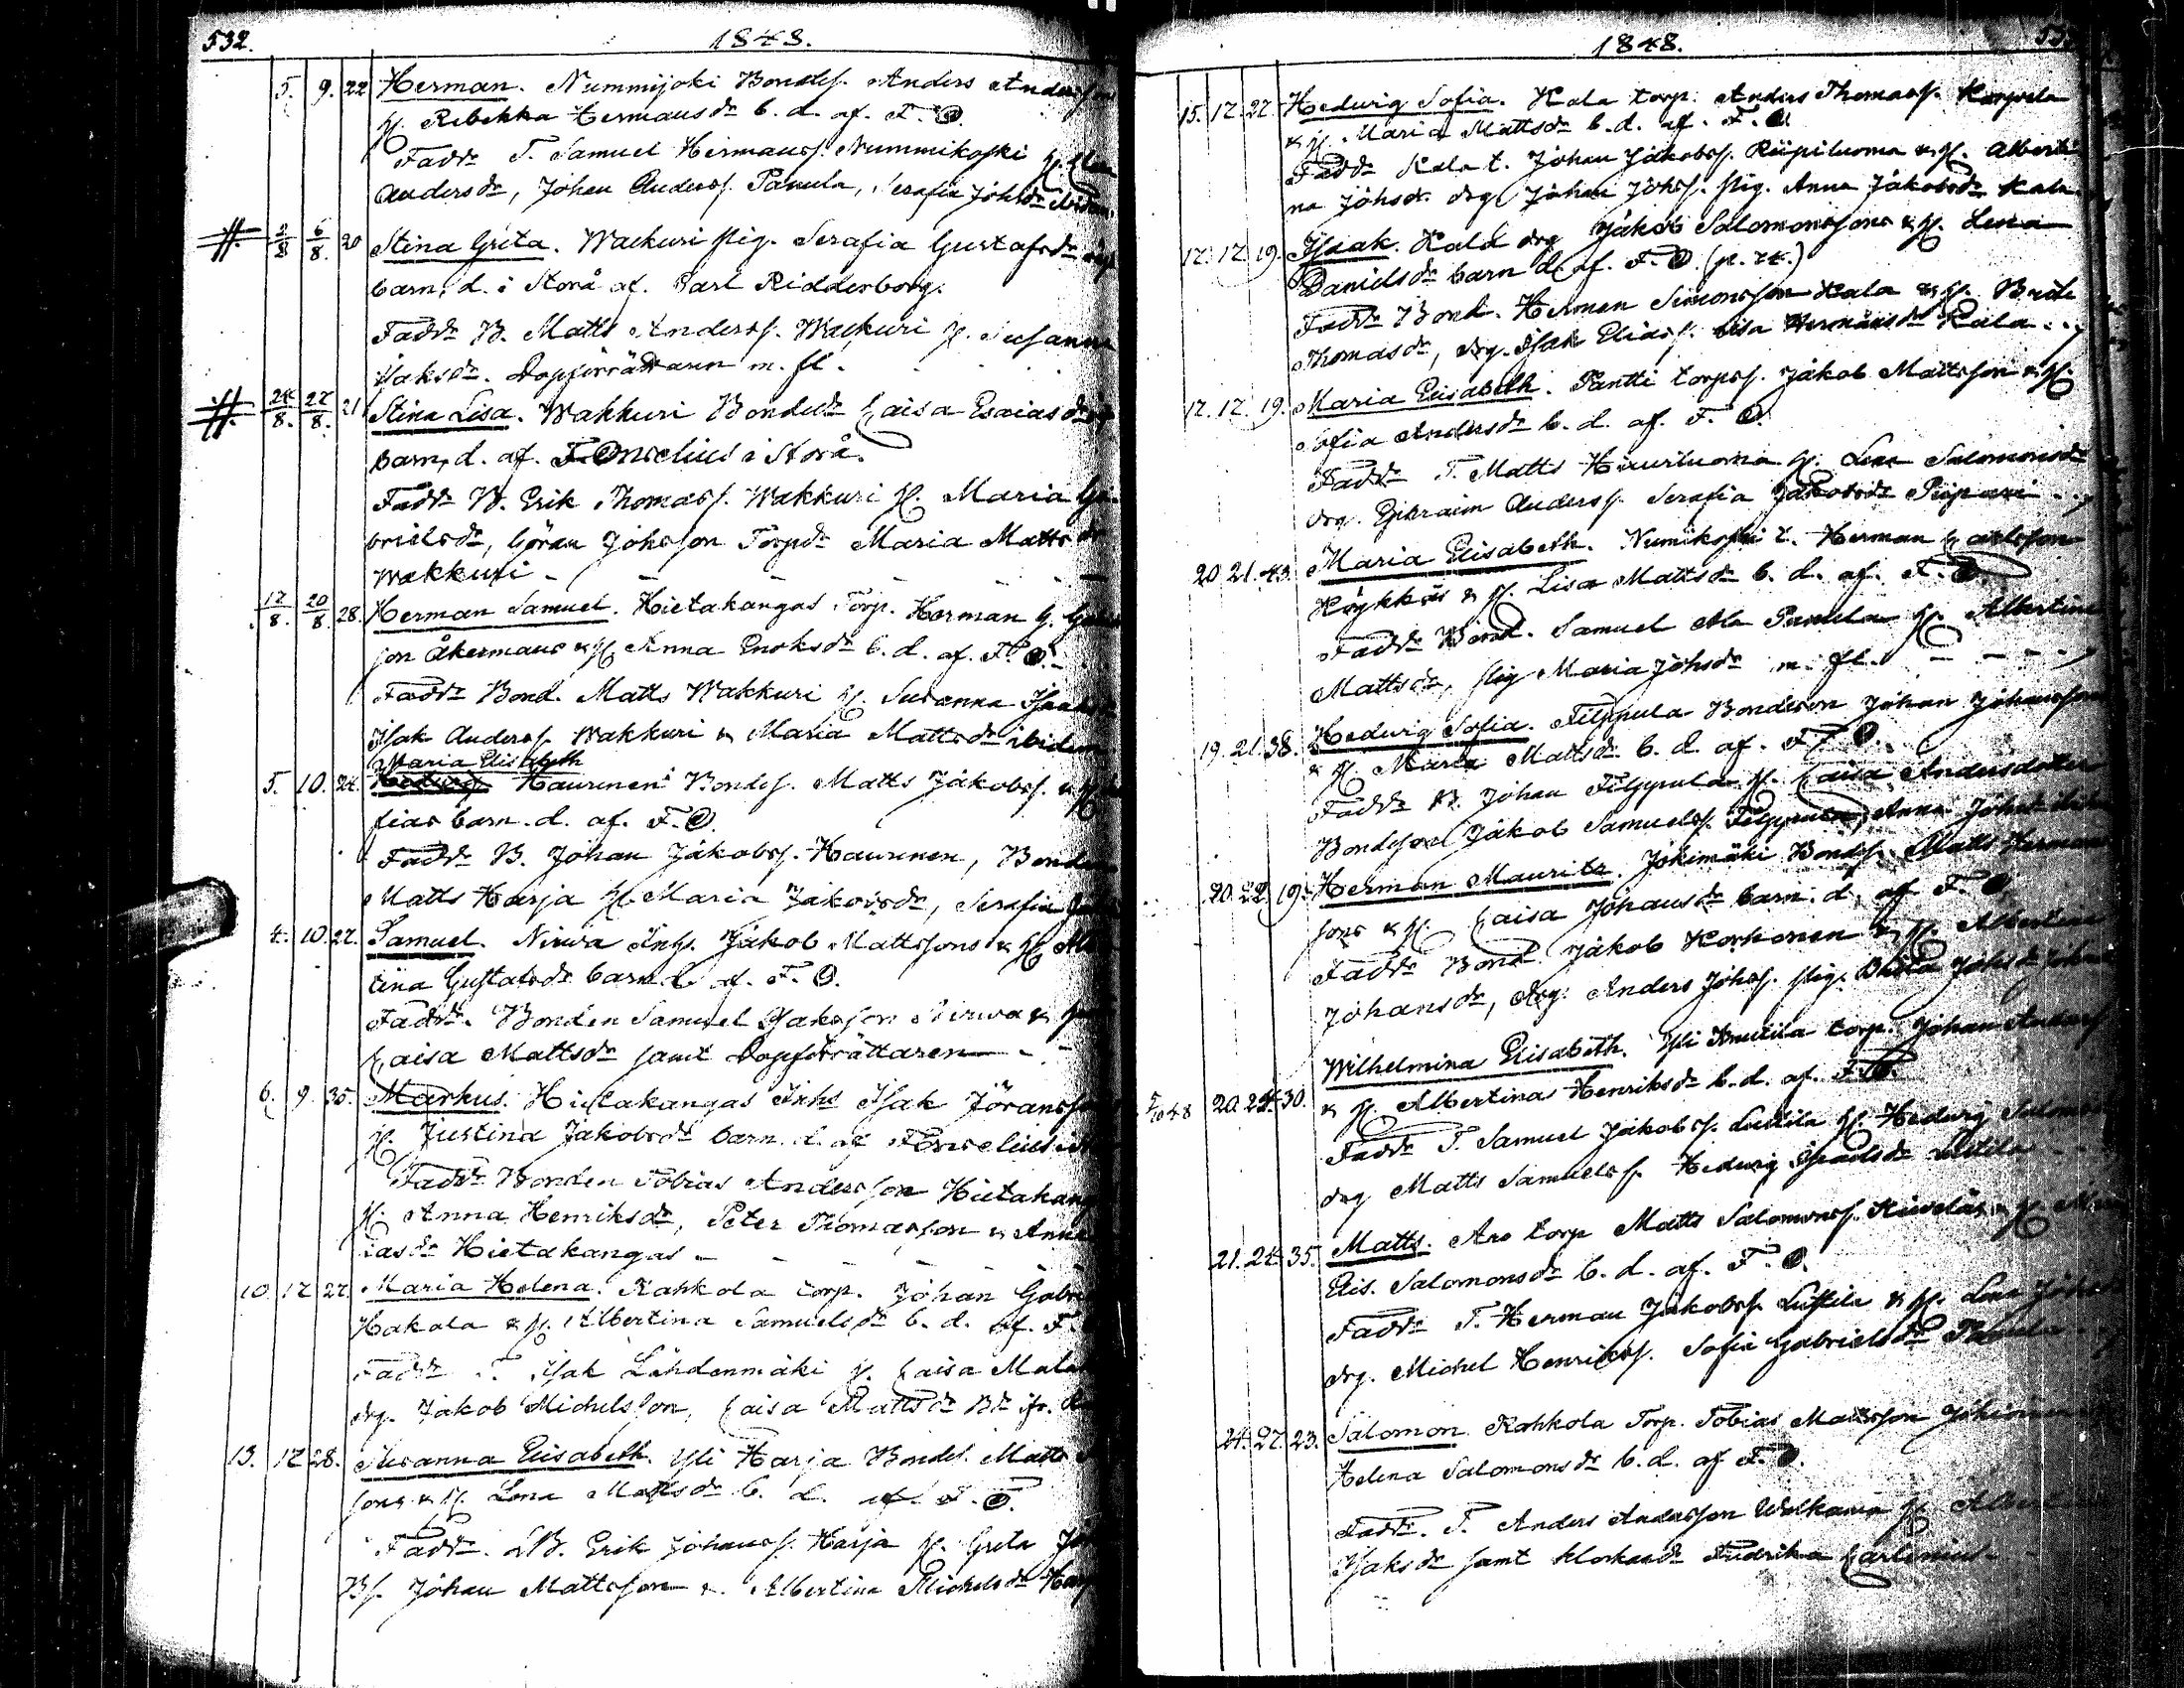 532. 1848.
5. 9. 22 Herman. Nummijoki Bondes. Anders Anders
H. Rebekka Hermansdr b. d. af. F. O.
Faddr T. Samuel Hermanss. Nummikoski H.
Andersdr, Johan Anderss. Panula, Serafia Johsdr ibidem
2/8 6/8 20 Stina Greta. Wackuri pig. Serafia Gustafsdr
barn, d. i Storå af. Carl Ridderborg.
Faddr B. Matts Anderss. Wackuri H. Susanna
Isaksdr. Dopförrättaren m. fl.
24/8. 27/8. 21 Stina Lisa. Wakkuri Bondedr Caisa Esaiasdr
barn, d. af. F. Onselius i Storå.
Faddr B. Erik Thomass. Wakkuri H. Maria Ga-
brielsdr, Göran Johsson Torpdr Maria Mattsdr
Wakkuri
17/8. 20/8. 28. Herman Samuel. Hietakangas Torp. Herman G.
son Åkermans & H. Anna Enoksdr b. d. af. F. O.
Faddr Bond. Matts Wakkuri H. Susanna Isaks
Isak Anderss. Wakkuri & Maria Mattsdr ibidem
Maria Elisabeth
5. 10. 24. Hedwig Haurunen Bondes. Matts Jakobss. & H.
fias barn. d. af. F. O.
Faddr B. Johan Jakobss. Haurunen, Bonde
Matts Harja H. Maria Jakobsdr, Serafia
4. 10. 27. Samuel. Nirwa Inhs. Jakob Mattssons & H. Al
tina Gustafsdr barn d. af. F. O.
Faddr. Bonden Samuel Isaksson Nirwa &
Caisa Mattsdr samt Dopförrättaren
6. 9. 35. Markus. Hietakangas Inhs Isak Jöranss
H. Justina Jakobsdr barn d. af F Onselius
Faddr Bonden Tobias Andersson Hietakang
H. Anna Henriksdr, Peter Thomasson & Anna
iasdr Hietakangas
10. 12 27. Maria Helena. Kahkola torp. Johan Gabri
Hakala & H. Albertina Samuelsdr b. d. af. F.
Faddr T. Isak Lähdenmäki H. Caisa
drg. Jakob Michelsson, Caisa Mattsdr
13. 12 28. Susanna Elisabeth. Yli Harja Bondes. Matts
sons & H. Lena Mattsdr b. d. af. F. O.
Faddr. B. Erik Johanss. Harja H. Greta
Bs. Johan Mattsson &. Albertina Michelsdr
1848.
15. 17. 27. Hedwig Sofia. Kala torp. Anders Thomass. Korpela
& H. Maria Mattsdr b. d. af. F. O.
Faddr Kala t. Johan Jakobss. Riipiluoma & H. Alberti
na Johsdr. drg Johan Johss. pig. Anna Jakobsdr Kala
17. 17. 19. Isaak. Kala drg Jakob Salomonssons & H. Lena
Danielsdr barn d. af. F. O (p. 24.)
Faddr Bond. Herman Simonsson Kala & H. Brita
Thomasdr, drg. Isak Eliass. Lisa Hermansdr Kala
17. 17. 19. Maria Elisabeth. Pantti torps. Jakob Mattsson & H.
Sofia Andersdr b. d. af. F. O.
Faddr T. Matts Hauruluoma H. Lena Salomonsdr
drg. Ephraim Anderss. Serafia Jakobsdr
20 21. 43. Maria Elisabeth. Numikoski t. Herman Carlsson
Köykkäs & H. Lisa Mattsdr b. d. af. F. O.
Faddr Bond. Samuel Ala Panula H. Albertina
Mattsdr, pig Maria Johsdr m. fl.
19. 21. 38. Hedwig Sofia. Filppula Bondeson Johan Johansson
& H. Maria Mattsdr b. d. af. F. O.
Faddr B. Johan Filppula H. Caisa Andersdotter
Bondeson Jakob Samuelss. Filppula, Anna Johsdr
20. 22. 19. Herman Maurits. Jokimäki Bondes. Matts Herman
sons & H. Caisa Johansdr barn. d. af F. O
Faddr Bond Jakob Korhonen & H. Albertina
Johansdr, drg. Anders Johss. pig. Brita Johsdr
20. 24. 30. Wilhelmina Elisabeth. Yli Knuutila torp. Johan Anders
& H. Albertinas Henriksdr b. d. af. F. O.
Faddr T. Samuel Jakobss. Luttila H. Hedwig Salomo
drg Matts Samuelss. Hedwig Isaaksdr Luttila
21. 24. 35. Matts. Aro torp Matts Salomonss. Kiwelä & H.
Elis. Salomonsdr b. d. af. F. O.
Faddr T. Herman Jakobss. Luttila & H. Lena
drg. Michel Henrikss. Sofia Gabrielsdr Panula
24. 27. 23. Salomon Kahkola Torp. Tobias Mattsson
Helena Salomonsdr b. d. af F. O.
Faddr. T. Anders Andersson Walkama H.
Isaksdr samt klockaredr Fredrika Carlenius